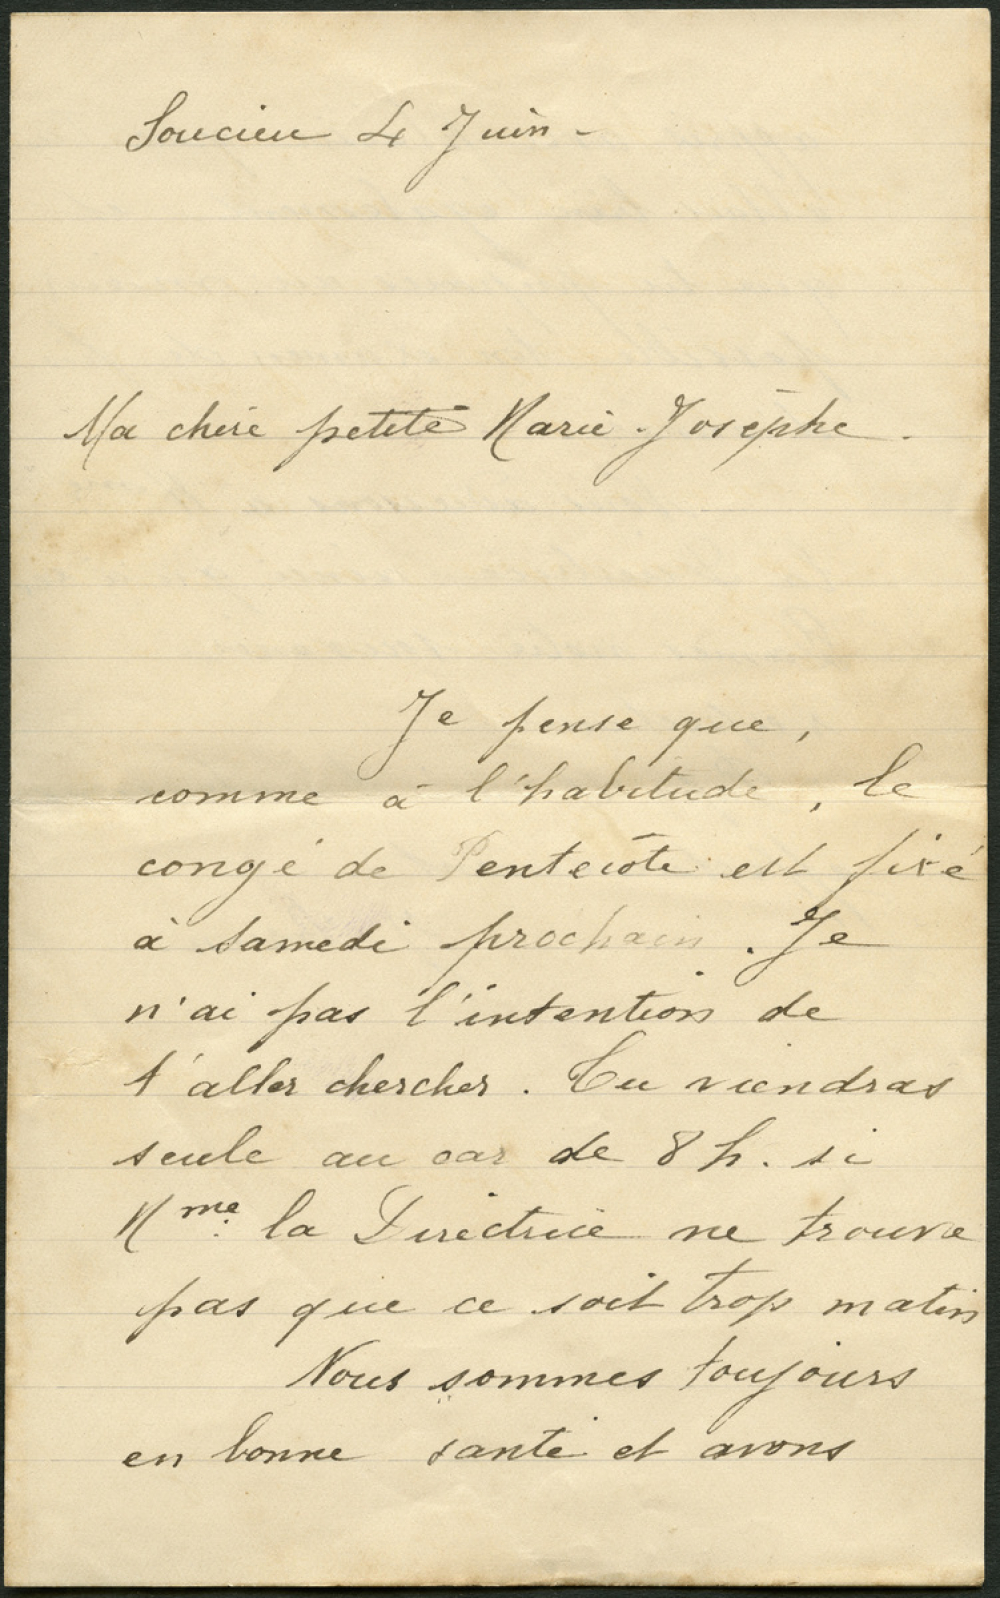 Soucieu 4 Juin -
Ma chère petite Marie Josèphe.
Je pense que,
comme à l'habitude, le
congé de Pentecôte est fixé
à samedi prochain. Je
n'ai pas l'intention de
t'aller chercher. Tu viendras
seule au car de 8 h. si
Mme. la Directrice ne trouve
pas que ce soit trop matin
Nous sommes toujours
en bonne santé et avons